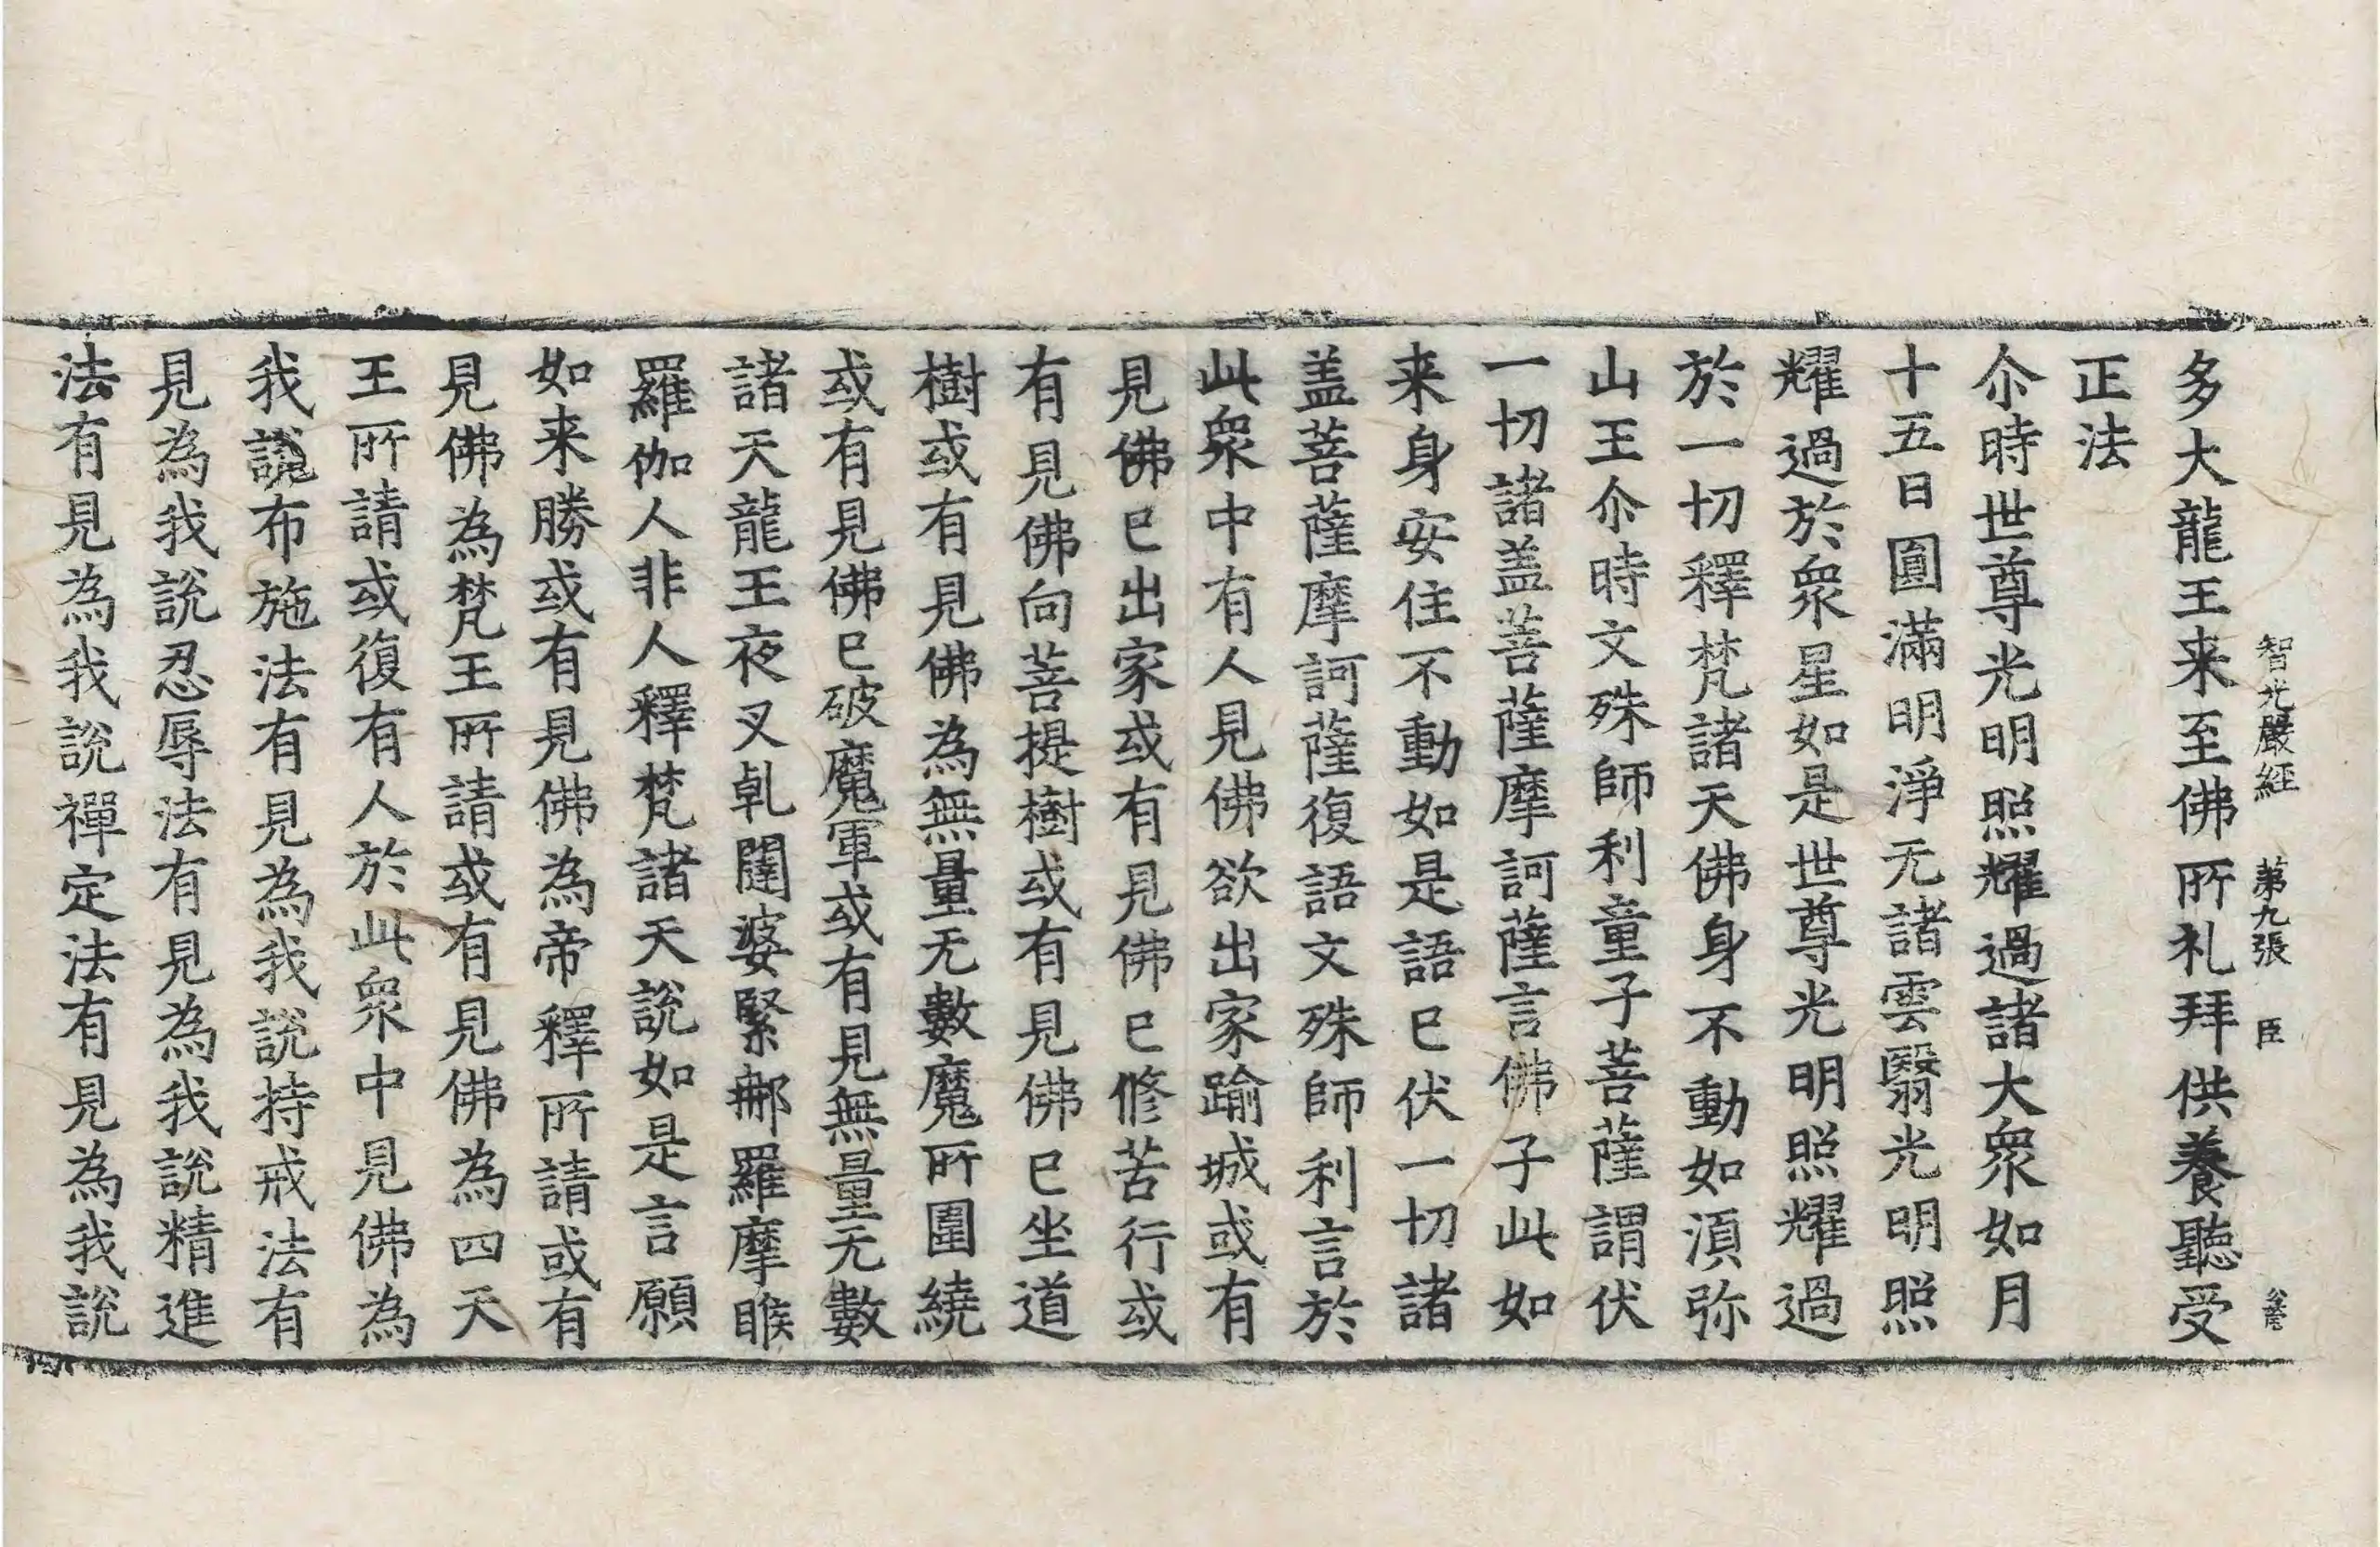 智光嚴経 第九張 臣
多大龍王来至佛所礼拜供養聽受
正法
尒時世尊光明照耀過諸大衆如月
十五日圓滿明淨无諸雲翳光明照
耀過於衆星如是世尊光明照耀過
於一切釋梵諸天佛身不動如湏弥
山王尒時文殊師利童子菩薩謂伏
一切諸盖菩薩摩訶薩言佛子此如
来身安住不動如是語已伏一切諸
盖菩薩摩訶薩復語文殊師利言於
此衆中有人見佛欲出家踰城或有
見佛已出家或有見佛已修苦行或
有見佛向菩提樹或有見佛已坐道
樹或有見佛為無量无數魔所圍繞
或有見佛已破魔軍或有見無量无數
諸天龍王夜叉乹闥婆緊那羅摩睺
羅伽人非人釋梵諸天說如是言願
如来勝或有見佛為帝釋所請或有
見佛為梵王所請或有見佛為四天
王所請或復有人於此衆中見佛為
我說布施法有見為我說持戒法有
見為我說忍辱法有見為我說精進
法有見為我說禪定法有見為我說